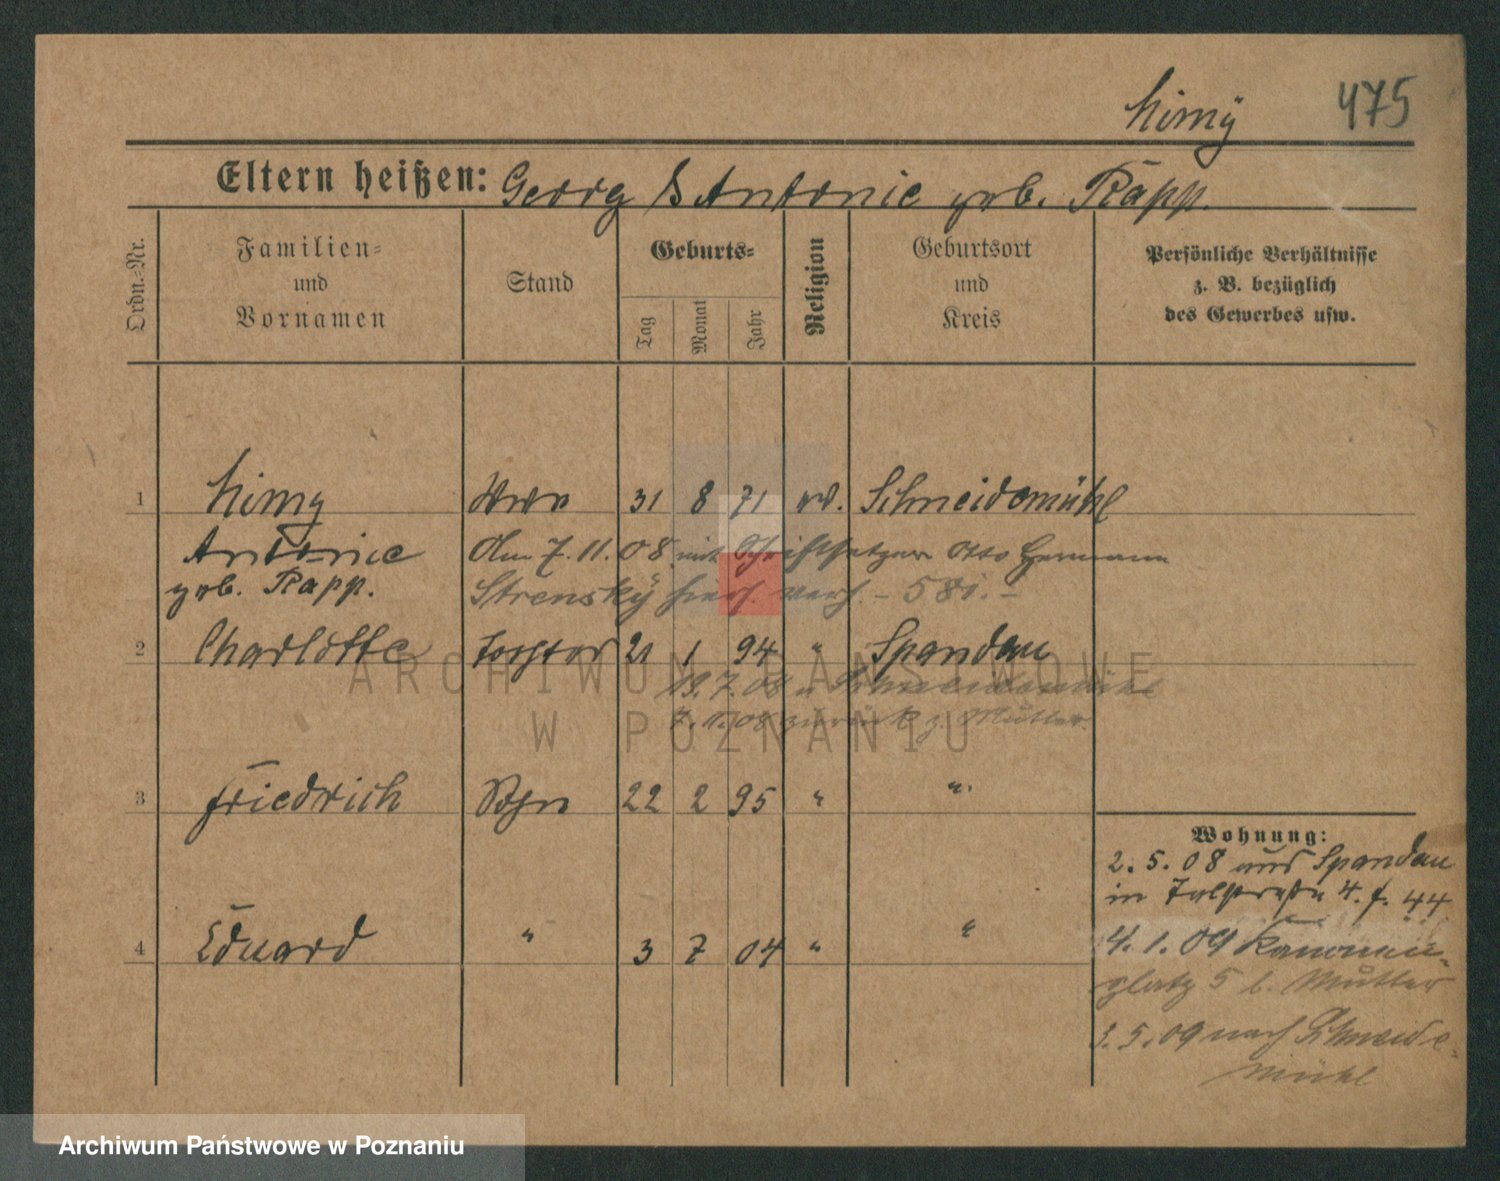 475
Eltern heißen: Georg & Antonie geb. Rapp.
Ordn.-Nr.
Familien-
und
Vornamen
Stand
Geburts-
Tag
Monat
Jahr
Religion
Geburtsort
und
Kreis
Persönliche Verhältnisse
z. B. bezüglich
des Gewerbes usw.
1 31 8 71 Schneidemühl
Antonie Am 7. 11. 08 mit Schriftsetzer Otto Hermann
geb. Rapp. Strensky hier verh. - 581. -
2 Charlotte Tochter 21 1 94 " Spandau
18. 7. 08 n Schneidemühl
7. 11. 08 zurück z. Mutter.
3 Friedrich Sohn 22 2 95 " "
4 Eduard " 3 7 04 " "
Wohnung:
2. 5. 08 aus Spandau
in Talstraße 4. 44
4. 1. 09 Kanonen-
platz 5 b. Mutter
5. 09 nach Schneide-
mühl
ARCHIWUM PAŃSTWOWE
W POZNANIU
Archiwum Państwowe w Poznaniu